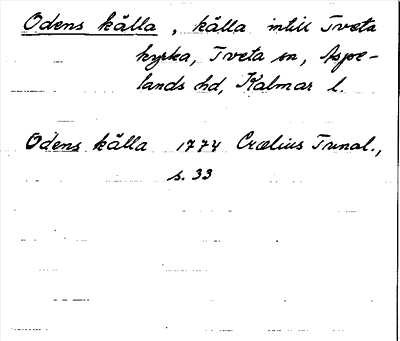 Odens källa, källa intill Tveta
kyrka, Tveta sn, Aspe-
lands hd, Kalmar l.
Odens källa 1774 Crælius Tunal.,
s. 33